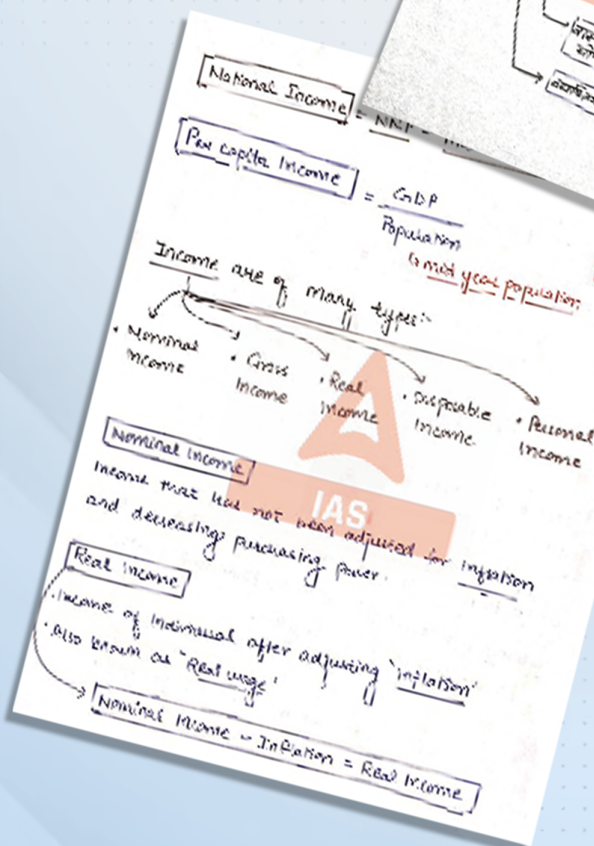 National Income = NNP -
Per capita Income = GDP
Population
↳ mid year population
Income are of many types:-
• Nominal Income
• Gross Income
• Real Income
• Disposable Income
• Personal Income
Nominal Income
Income that has not been adjusted for inflation
and decreasing purchasing power.
Real Income
• Income of Individual after adjusting 'inflation'
• Also known as "Real wage"
Nominal Income - Inflation = Real Income
IAS